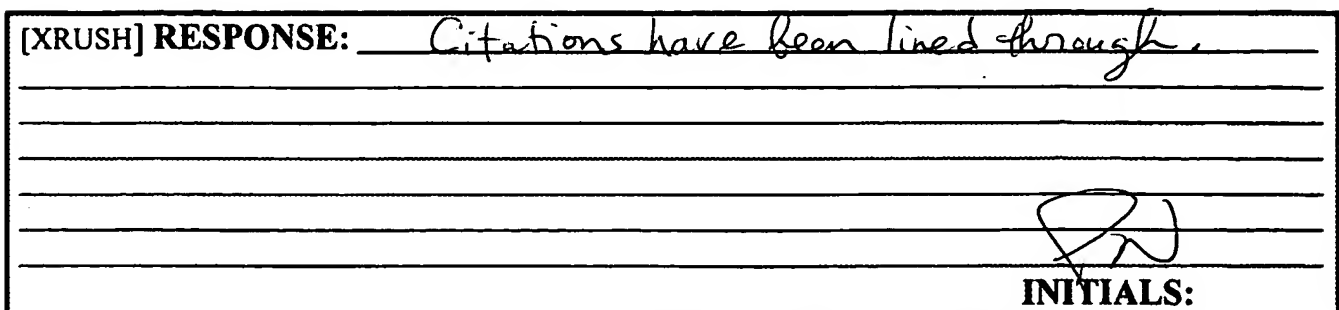 [XRUSH] RESPONSE: Citations have been lined through.
INITIALS: